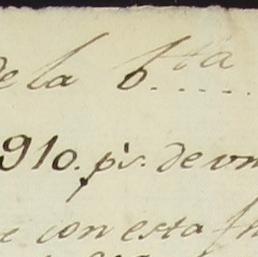 de la b.ta......
910. ps. de un
e con esta fh